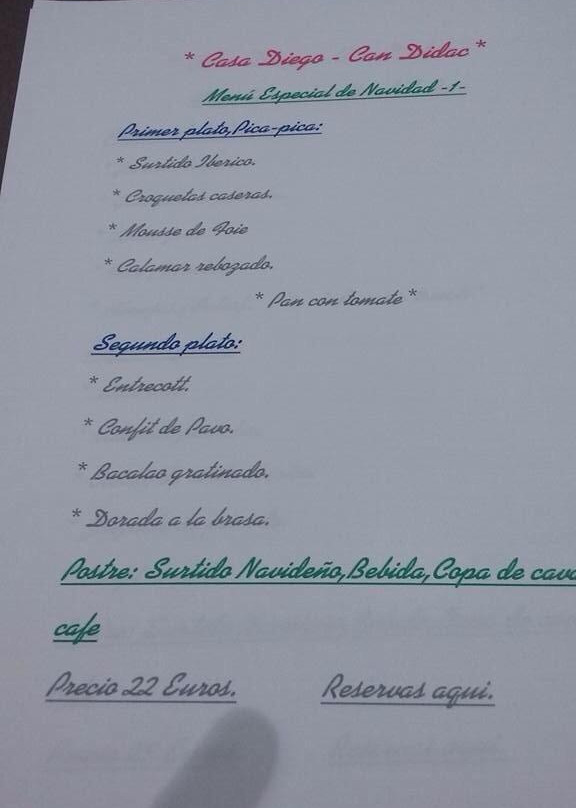 * Casa Diego - Can Didac *
Menú Especial de Navidad -1-
Primer plato,Pica-pica:
* Surtido Iberico.
* Croquetas caseras.
* Mousse de Foie
* Calamar rebozado.
* Pan con tomate *
Segundo plato:
* Entrecott.
* Confit de Pavo.
* Bacalao gratinado.
* Dorada a la brasa.
Postre: Surtido Navideño,Bebida,Copa de cava
cafe
Precio 22 Euros. Reservas aqui.